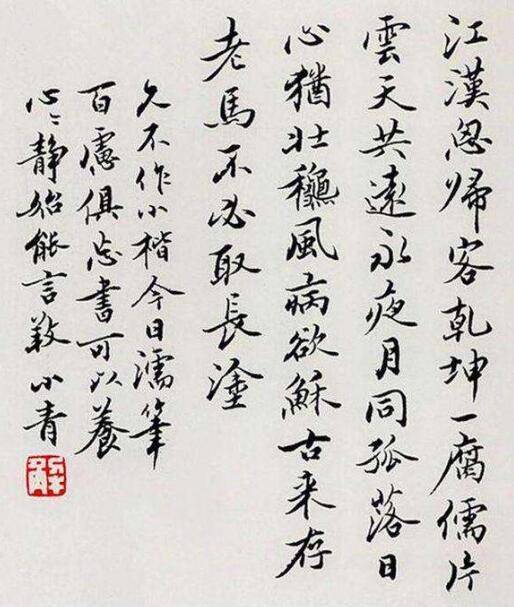 江漢思歸客乾坤一腐儒片
雲天共遠永夜月同孤落日
心猶壯穐風病欲穌古来存
老馬不必取長塗
久不作小楷今日濡筆
百慮俱忘書可以養
心〻靜始能言敬小青